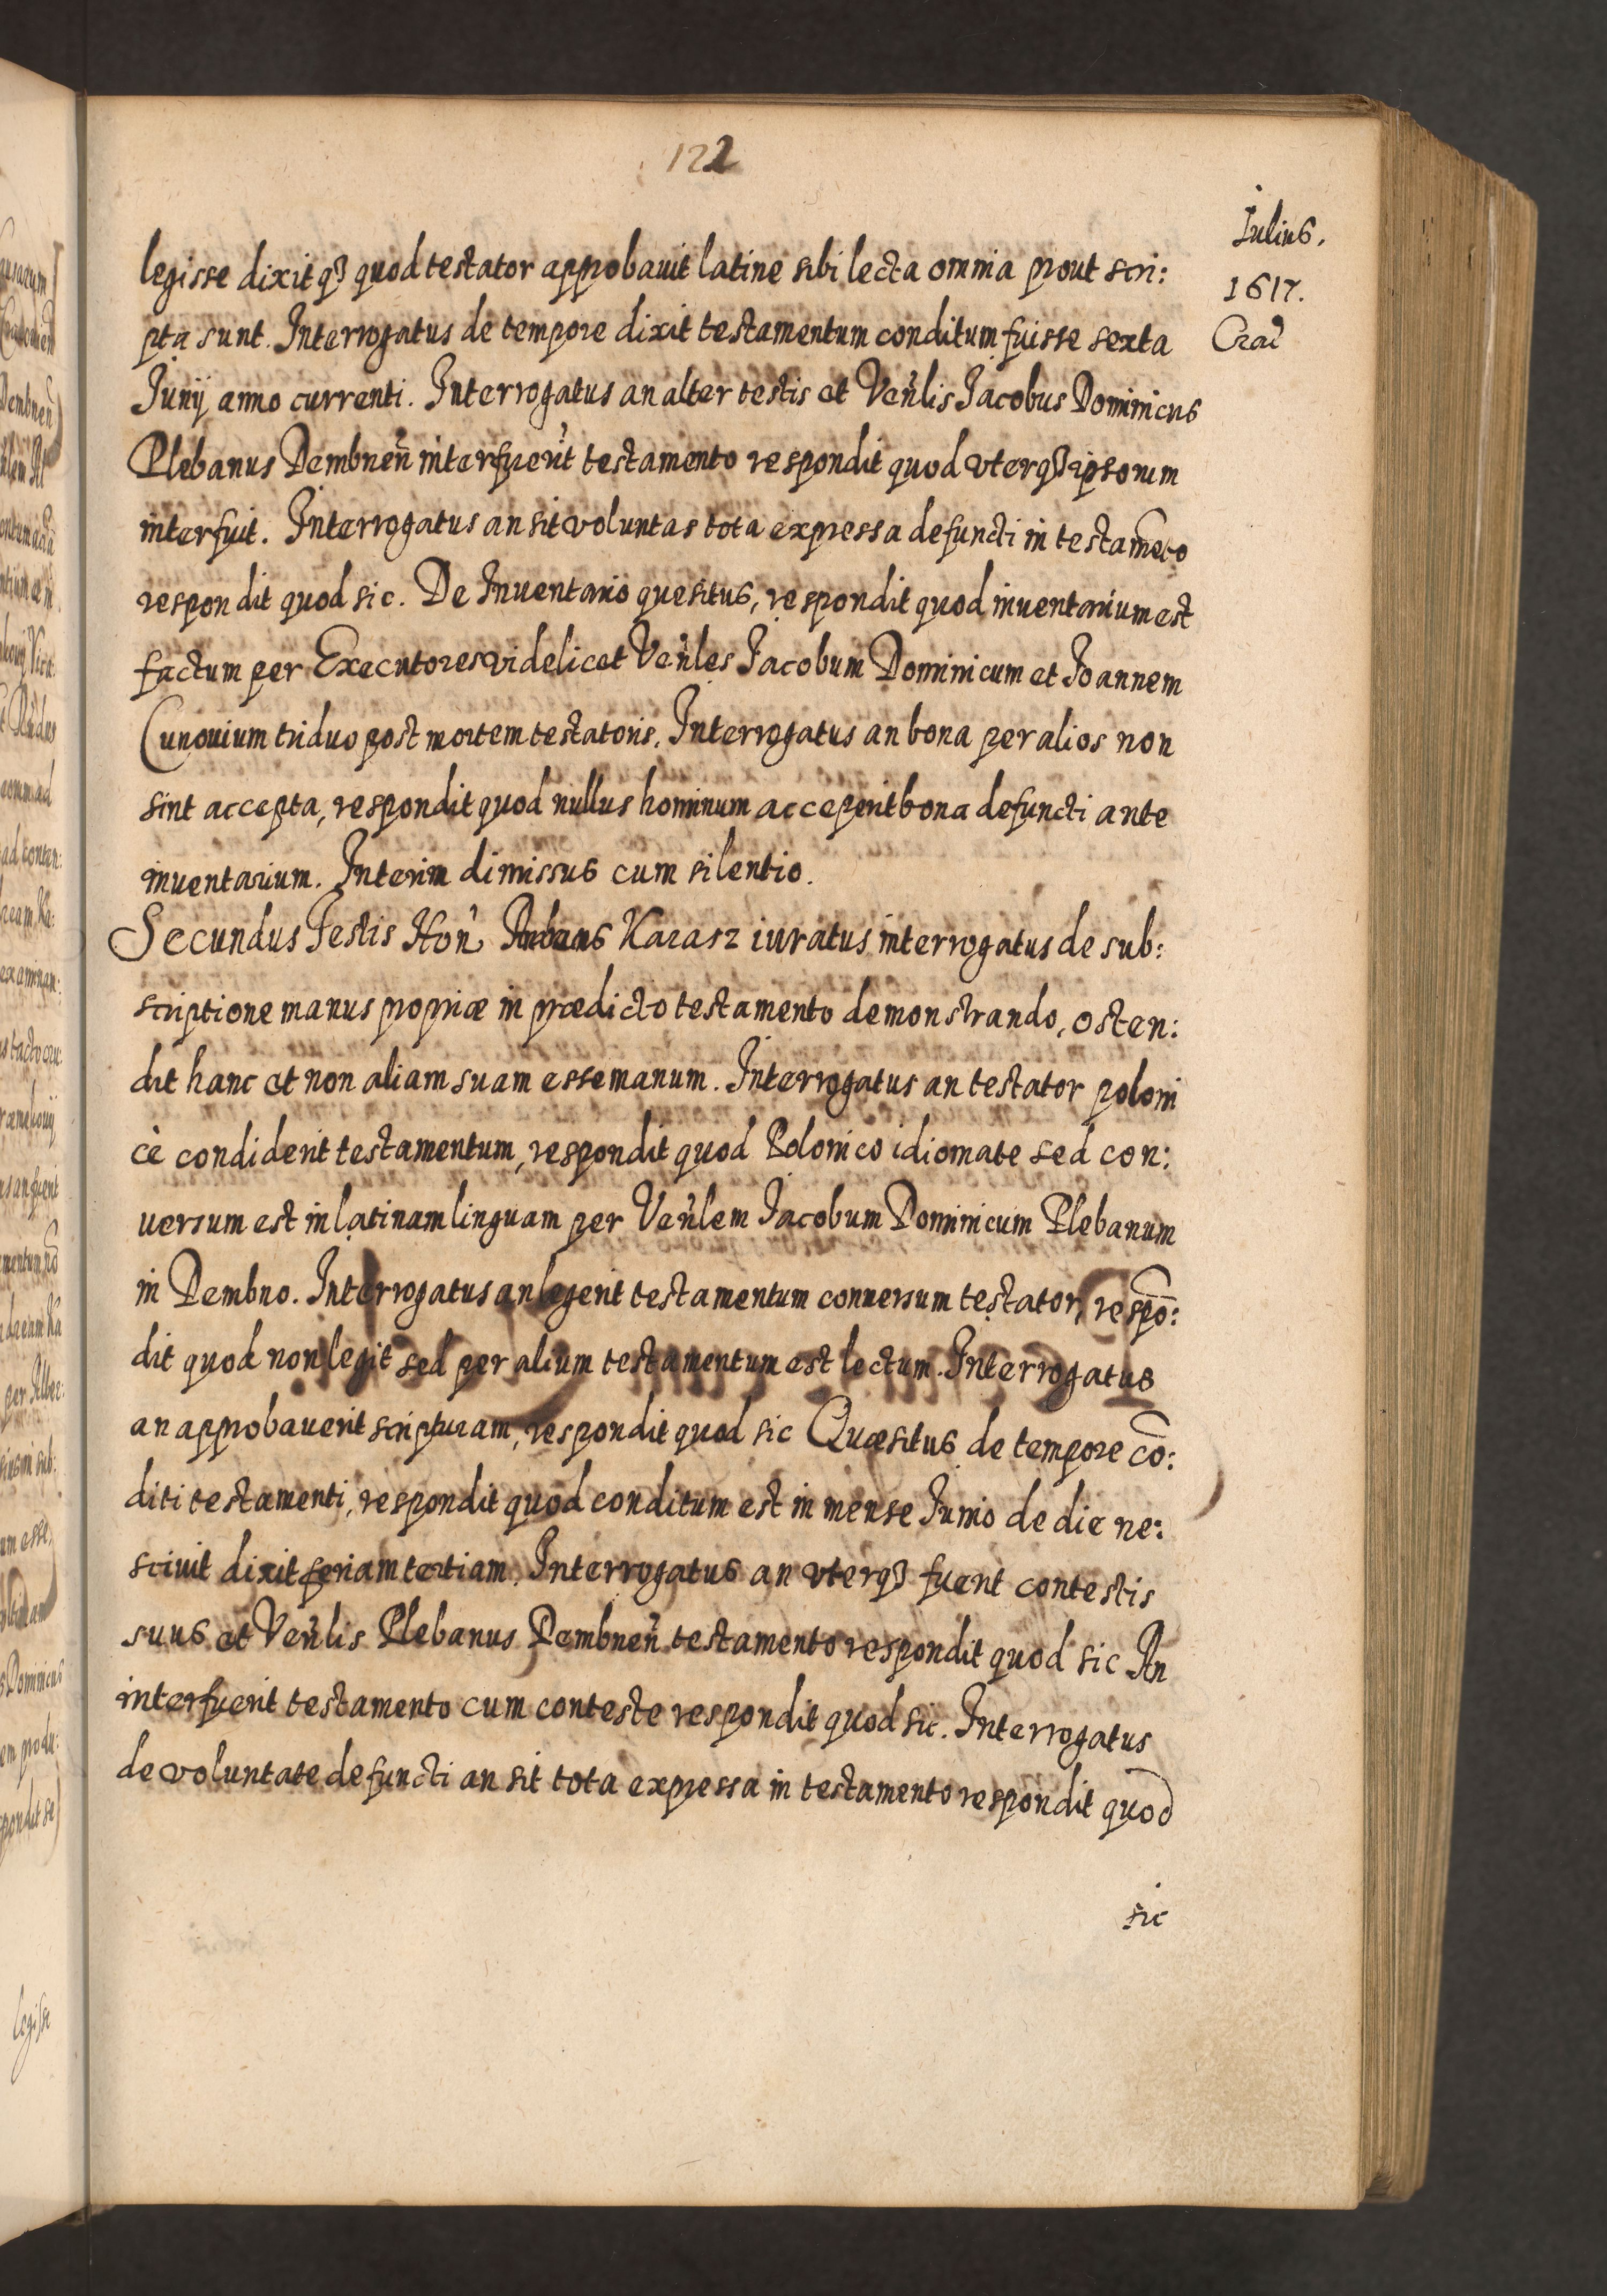 122
Iulius.
1617.
Crac
legisse dixitq3 quod testator approbauit latine sibi lecta omnia prout scri:
pta sunt. Interrogatus de tempore dixit testamentum conditum fuisse sexta
Junij anno currenti. Interrogatus an alter testis et Ven̄lis Jacobus Dominicus
Plebanus Dembnen̄ interfuerit testamento respondit quod vterq3 ipsorum
interfuit. Interrogatus an sit voluntas tota expressa defuncti in testam̄eto
respondit quod sic. De Inuentario quesitus, respondit quod inuentarium est
factum per Executores videlicet Ven̄les Jacobum Dominicum et Joannem
Cunouium triduo post mortem testatoris. Interrogatus an bona per alios non
sint accepta, respondit quod nullus hominum acceperit bona defuncti ante
inuentarium. Interim dimissus cum silentio.
Secundus Testis Hon̄ Karasz iuratus interrogatus de sub:
scriptione manus propriæ in prædicto testamento demonstrando, osten:
dit hanc et non aliam suam esse manum. Interrogatus an testator poloni
cè condiderit testamentum, respondit quod Polonico idiomate sed con:
uersum est in latinam linguam per Ven̄lem Jacobum Dominicum Plebanum
in Dembno. Interrogatus an legerit testamentum conuersum testator, respō:
dit quod non legit sed per alium testamentum est lectum. Interrogatus
an approbauerit scripturam, respondit quod sic Quæsitus de tempore cō:
diti testamenti, respondit quod conditum est in mense Junio de die ne:
sciuit dixit feriam tertiam. Interrogatus an vterq3 fuerit contestis
suus et Ven̄lis Plebanus Dembnen̄ testamento respondit quod sic An
interfuerit testamento cum conteste respondit quod sic. Interrogatus
de voluntate defuncti an sit tota expressa in testamento respondit quod
sic
legisse